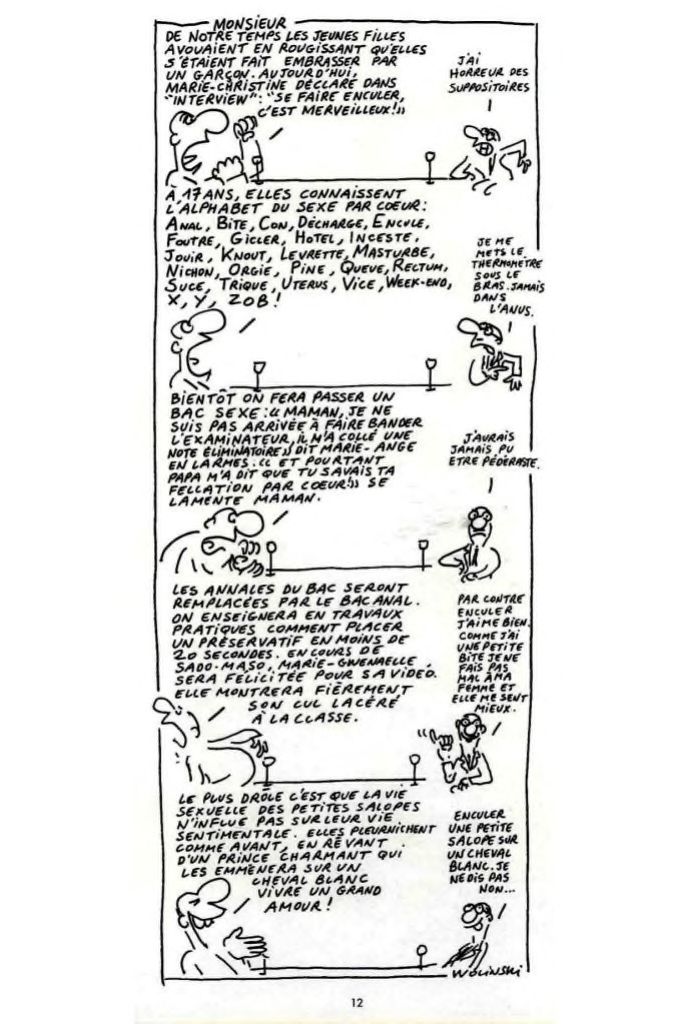 MONSIEUR
DE NOTRE TEMPS LES JEUNES FILLES
AVOUAIENT EN ROUGISSANT QU'ELLES
S'ÉTAIENT FAIT EMBRASSER PAR
UN GARÇON. AUJOURD'HUI,
MARIE-CHRISTINE DÉCLARE DANS
"INTERVIEW": "SE FAIRE ENCULER,
C'EST MERVEILLEUX!"
J'AI
HORREUR DES
SUPPOSITOIRES
À 17 ANS, ELLES CONNAISSENT
L'ALPHABET DU SEXE PAR COEUR:
ANAL, BITE, CON, DÉCHARGE, ENCULE,
FOUTRE, GICLER, HOTEL, INCESTE,
JOUIR, KNOUT, LEVRETTE, MASTURBE,
NICHON, ORGIE, PINE, QUEUE, RECTUM,
SUCE, TRIQUE, UTERUS, VICE, WEEK-END,
X, Y, ZOB!
JE ME
METS LE
THERMOMETRE
SOUS LE
BRAS. JAMAIS
DANS
L'ANUS.
BIENTÔT ON FERA PASSER UN
BAC SEXE: "MAMAN, JE NE
SUIS PAS ARRIVÉE À FAIRE BANDER
L'EXAMINATEUR, IL M'A COLLÉ UNE
NOTE ÉLIMINATOIRE" DIT MARIE-ANGE
EN LARMES. "ET POURTANT
PAPA M'A DIT QUE TU SAVAIS TA
FELLATION PAR COEUR!" SE
LAMENTE MAMAN.
J'AURAIS
JAMAIS PU
ETRE PÉDÉRASTE.
LES ANNALES DU BAC SERONT
REMPLACÉES PAR LE BAC ANAL.
ON ENSEIGNERA EN TRAVAUX
PRATIQUES COMMENT PLACER
UN PRÉSERVATIF EN MOINS DE
20 SECONDES. EN COURS DE
SADO-MASO, MARIE-GWENAELLE,
SERA FELICITÉE POUR SA VIDÉO.
ELLE MONTRERA FIÈREMENT
SON CUL LACÉRÉ
À LA CLASSE.
PAR CONTRE
ENCULER
J'AIME BIEN.
COMME J'AI
UNE PETITE
BITE JE NE
FAIS PAS
MAL À MA
FEMME ET
ELLE ME SENT
MIEUX.
LE PLUS DRÔLE C'EST QUE LA VIE
SEXUELLE DES PETITES SALOPES
N'INFLUE PAS SUR LEUR VIE
SENTIMENTALE. ELLES PLEURNICHENT
COMME AVANT, EN RÊVANT
D'UN PRINCE CHARMANT QUI
LES EMMÈNERA SUR UN
CHEVAL BLANC
VIVRE UN GRAND
AMOUR!
ENCULER
UNE PETITE
SALOPE SUR
UN CHEVAL
BLANC. JE
NE DIS PAS
NON...
WOLINSKI
12